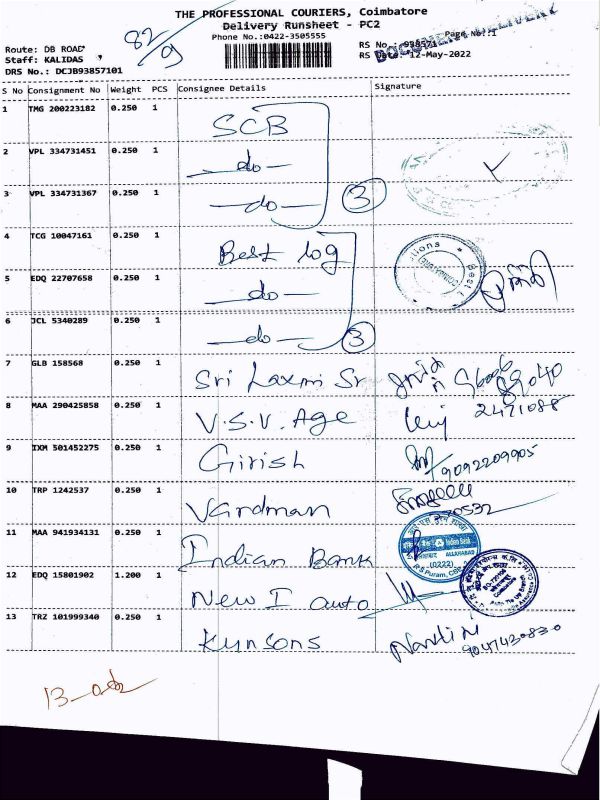 THE PROFESSIONAL COURIERS, Coimbatore
Delivery Runsheet - PC2
Phone No.:0422-3505555
82/9
Page No.:1
Route: DB ROAD
RS No. 938571
Staff: KALIDAS
RS Date: 12-May-2022
DRS No.: DCJB93857101
S No Consignment No Weight PCS Consignee Details Signature
1 TMG 200223182 0.250 1 SCB
2 VPL 334731451 0.250 1 —do—
3 VPL 334731367 0.250 1 —do— 3
4 TCG 10047161 0.250 1 Best log
5 EDQ 22707658 0.250 1 —do—
6 JCL 5340289 0.250 1 —do— 3
7 GLB 158568 0.250 1 Sri Laxmi Sr
8 MAA 290425858 0.250 1 V.S.V. Age 2471088
9 IXM 501452275 0.250 1 Girish 9092209905
10 TRP 1242537 0.250 1 Vardman
11 MAA 941934131 0.250 1 Indian Bank
ALLAHABAD
(0222)
12 EDQ 15801902 1.200 1 New I auto
13 TRZ 101999340 0.250 1 Kynsons